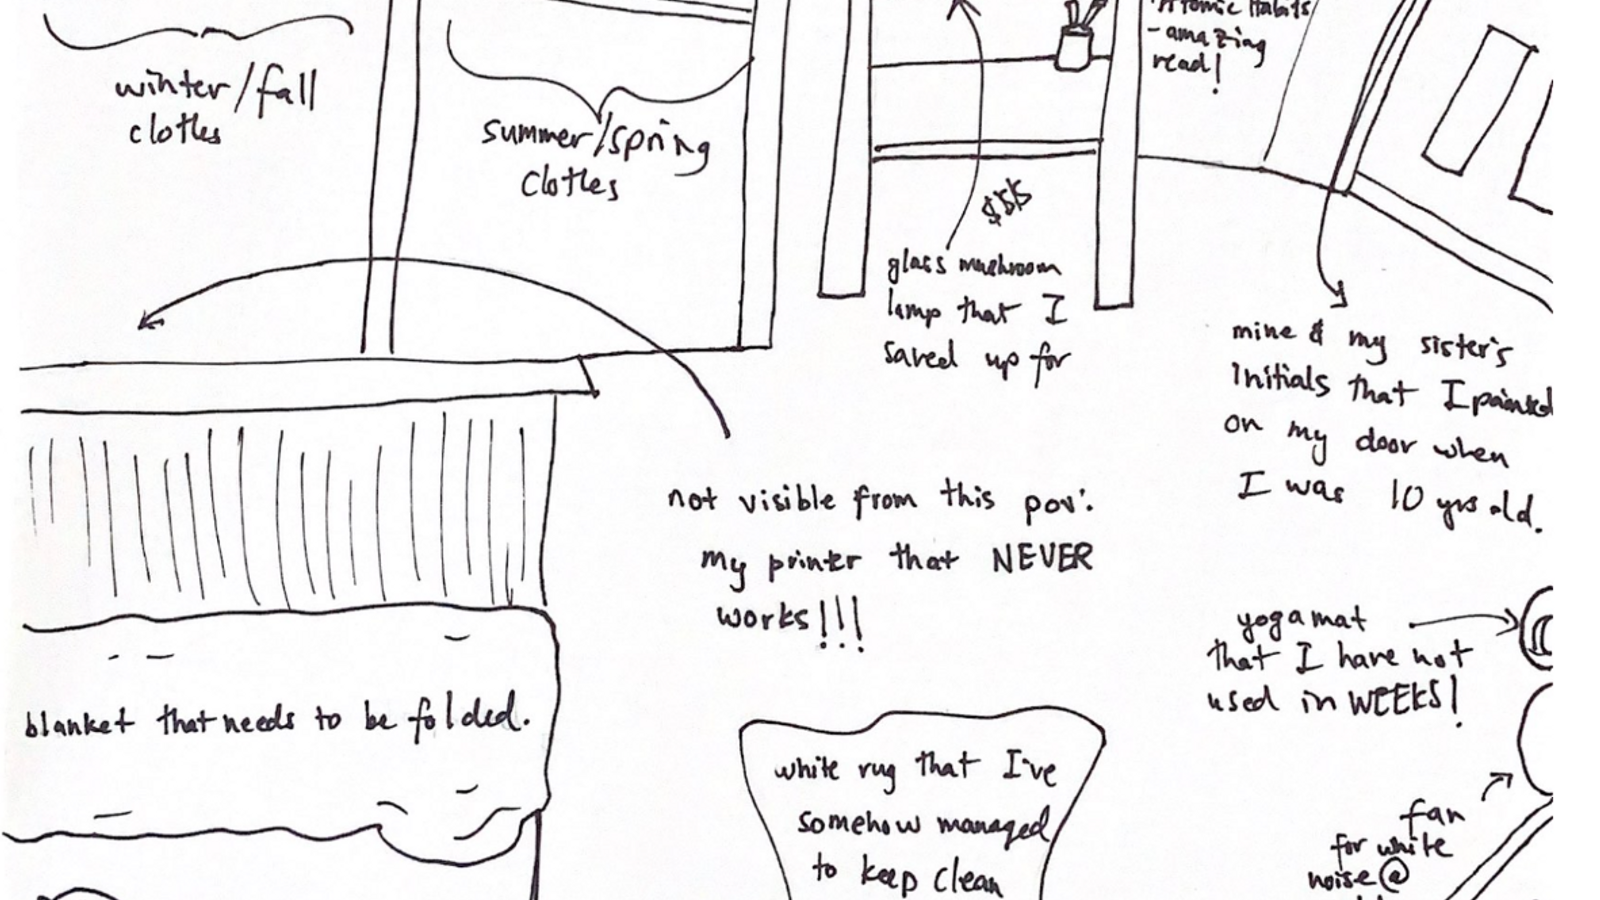 winter/fall
clothes
summer/spring
clothes
Atomic Habits
-amazing
read!
$$$
glass mushroom
lamp that I
saved up for
mine & my sister's
initials that I painted
on my door when
I was 10 yrs old.
not visible from this pov:
my printer that NEVER
works!!!
yoga mat
that I have not
used in WEEKS!
blanket that needs to be folded.
white rug that I've
somehow managed
to keep clean
fan
for white
noise @